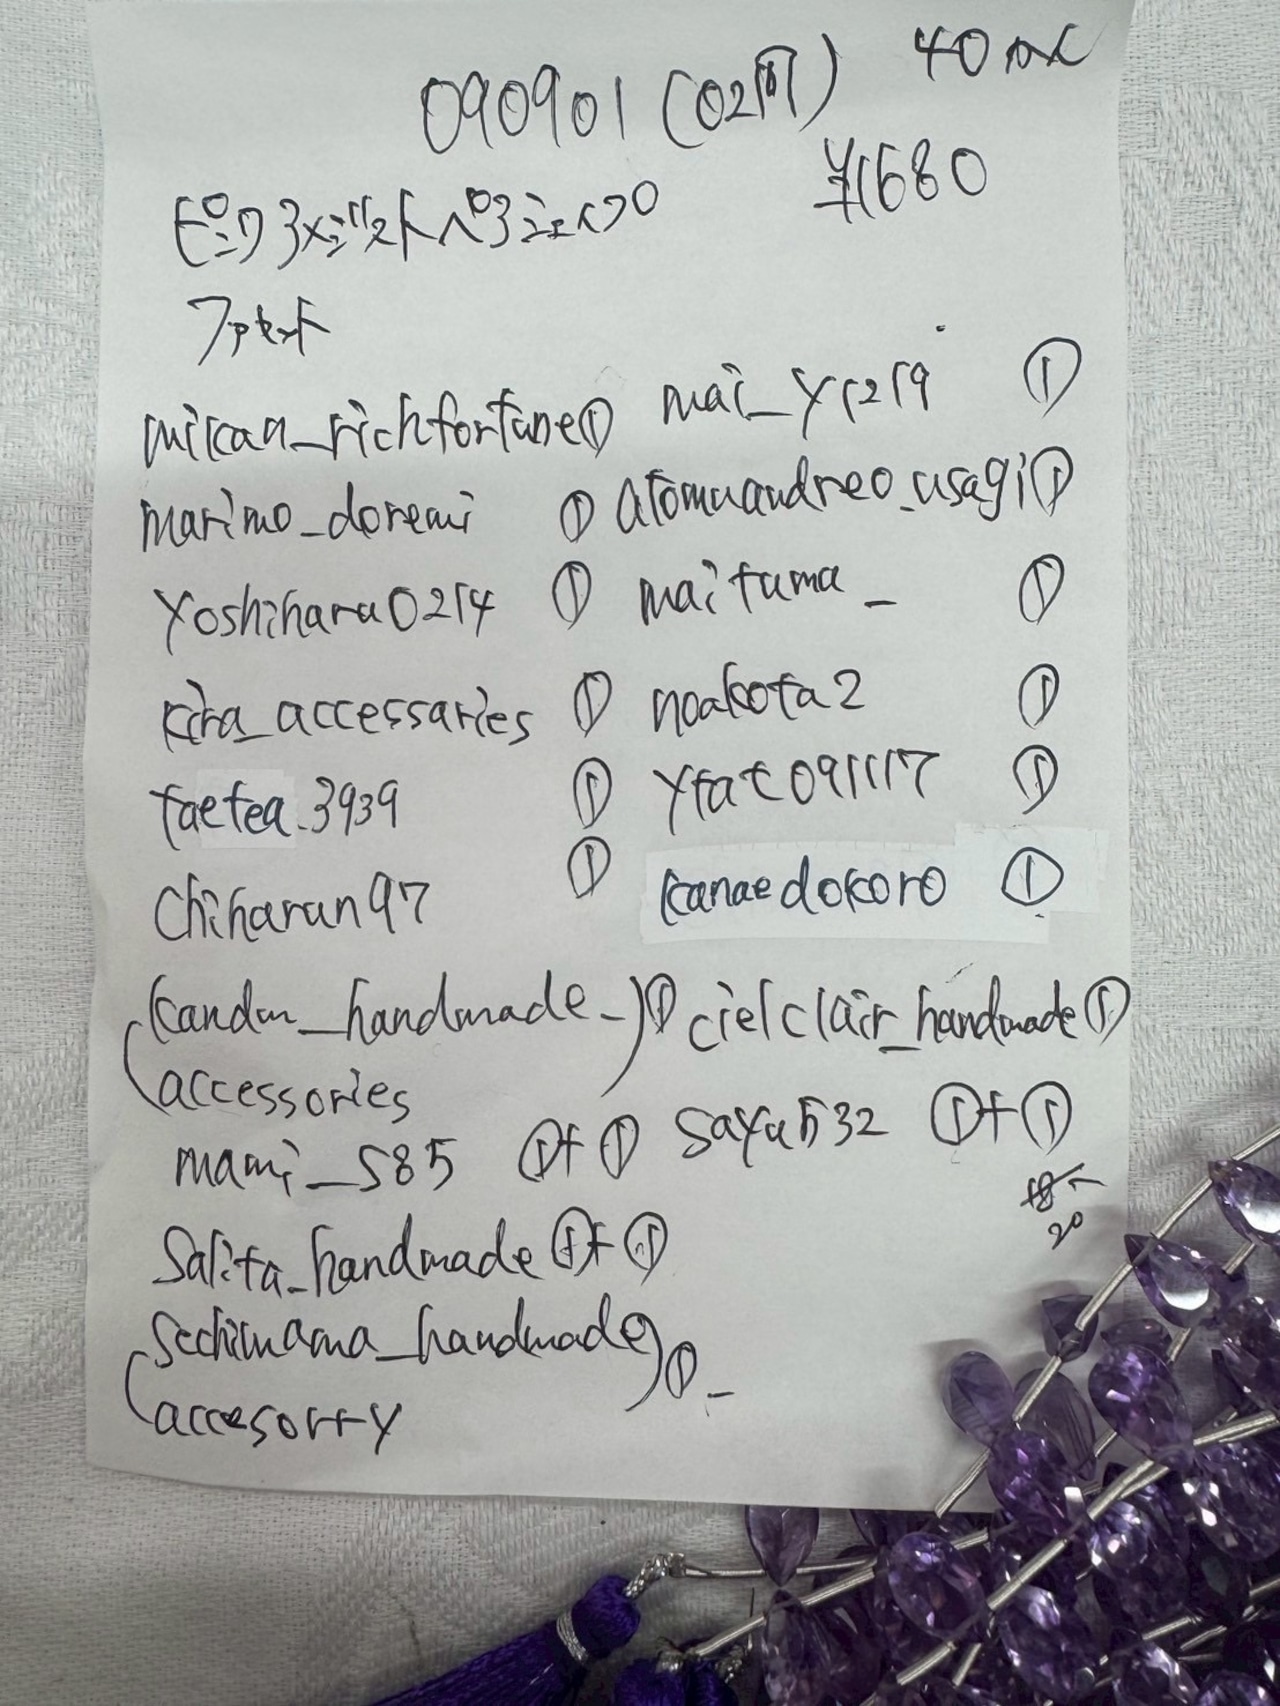 090901 (02月) 40 pc
¥1680
ピンクアメジストペアシェイプ
ファセット
mikan_richfortune① mai_y1219 ①
marimo_doremi ① atomuandreo_usagi①
Yoshiharu0214 ① maituma_ ①
kira_accessaries ① noakota2 ①
taetea.3939 ① ytat091117 ①
chiharun97 ① kanaedokoro ①
(kandm_handmade_)① cielclair_handmade①
accessories
mami_s85 ①+① sayu532 ①+①
18
20
Salita_handmade①+①
(sechimama_handmade)①
accesorry